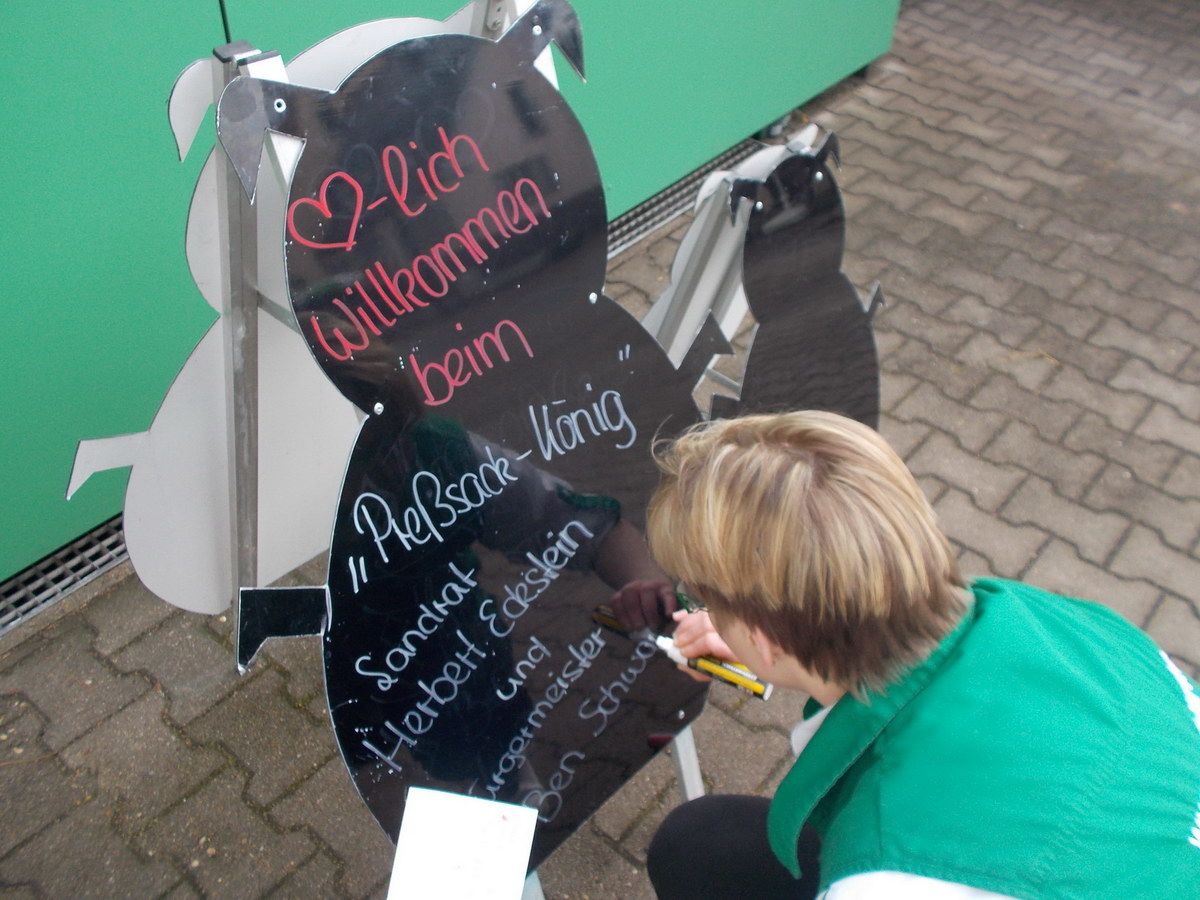 ♡-lich
Willkommen
beim
„Preßsack-König"
Landrat
Herbert Eckstein
und
Bürgermeister
Ben Schwa